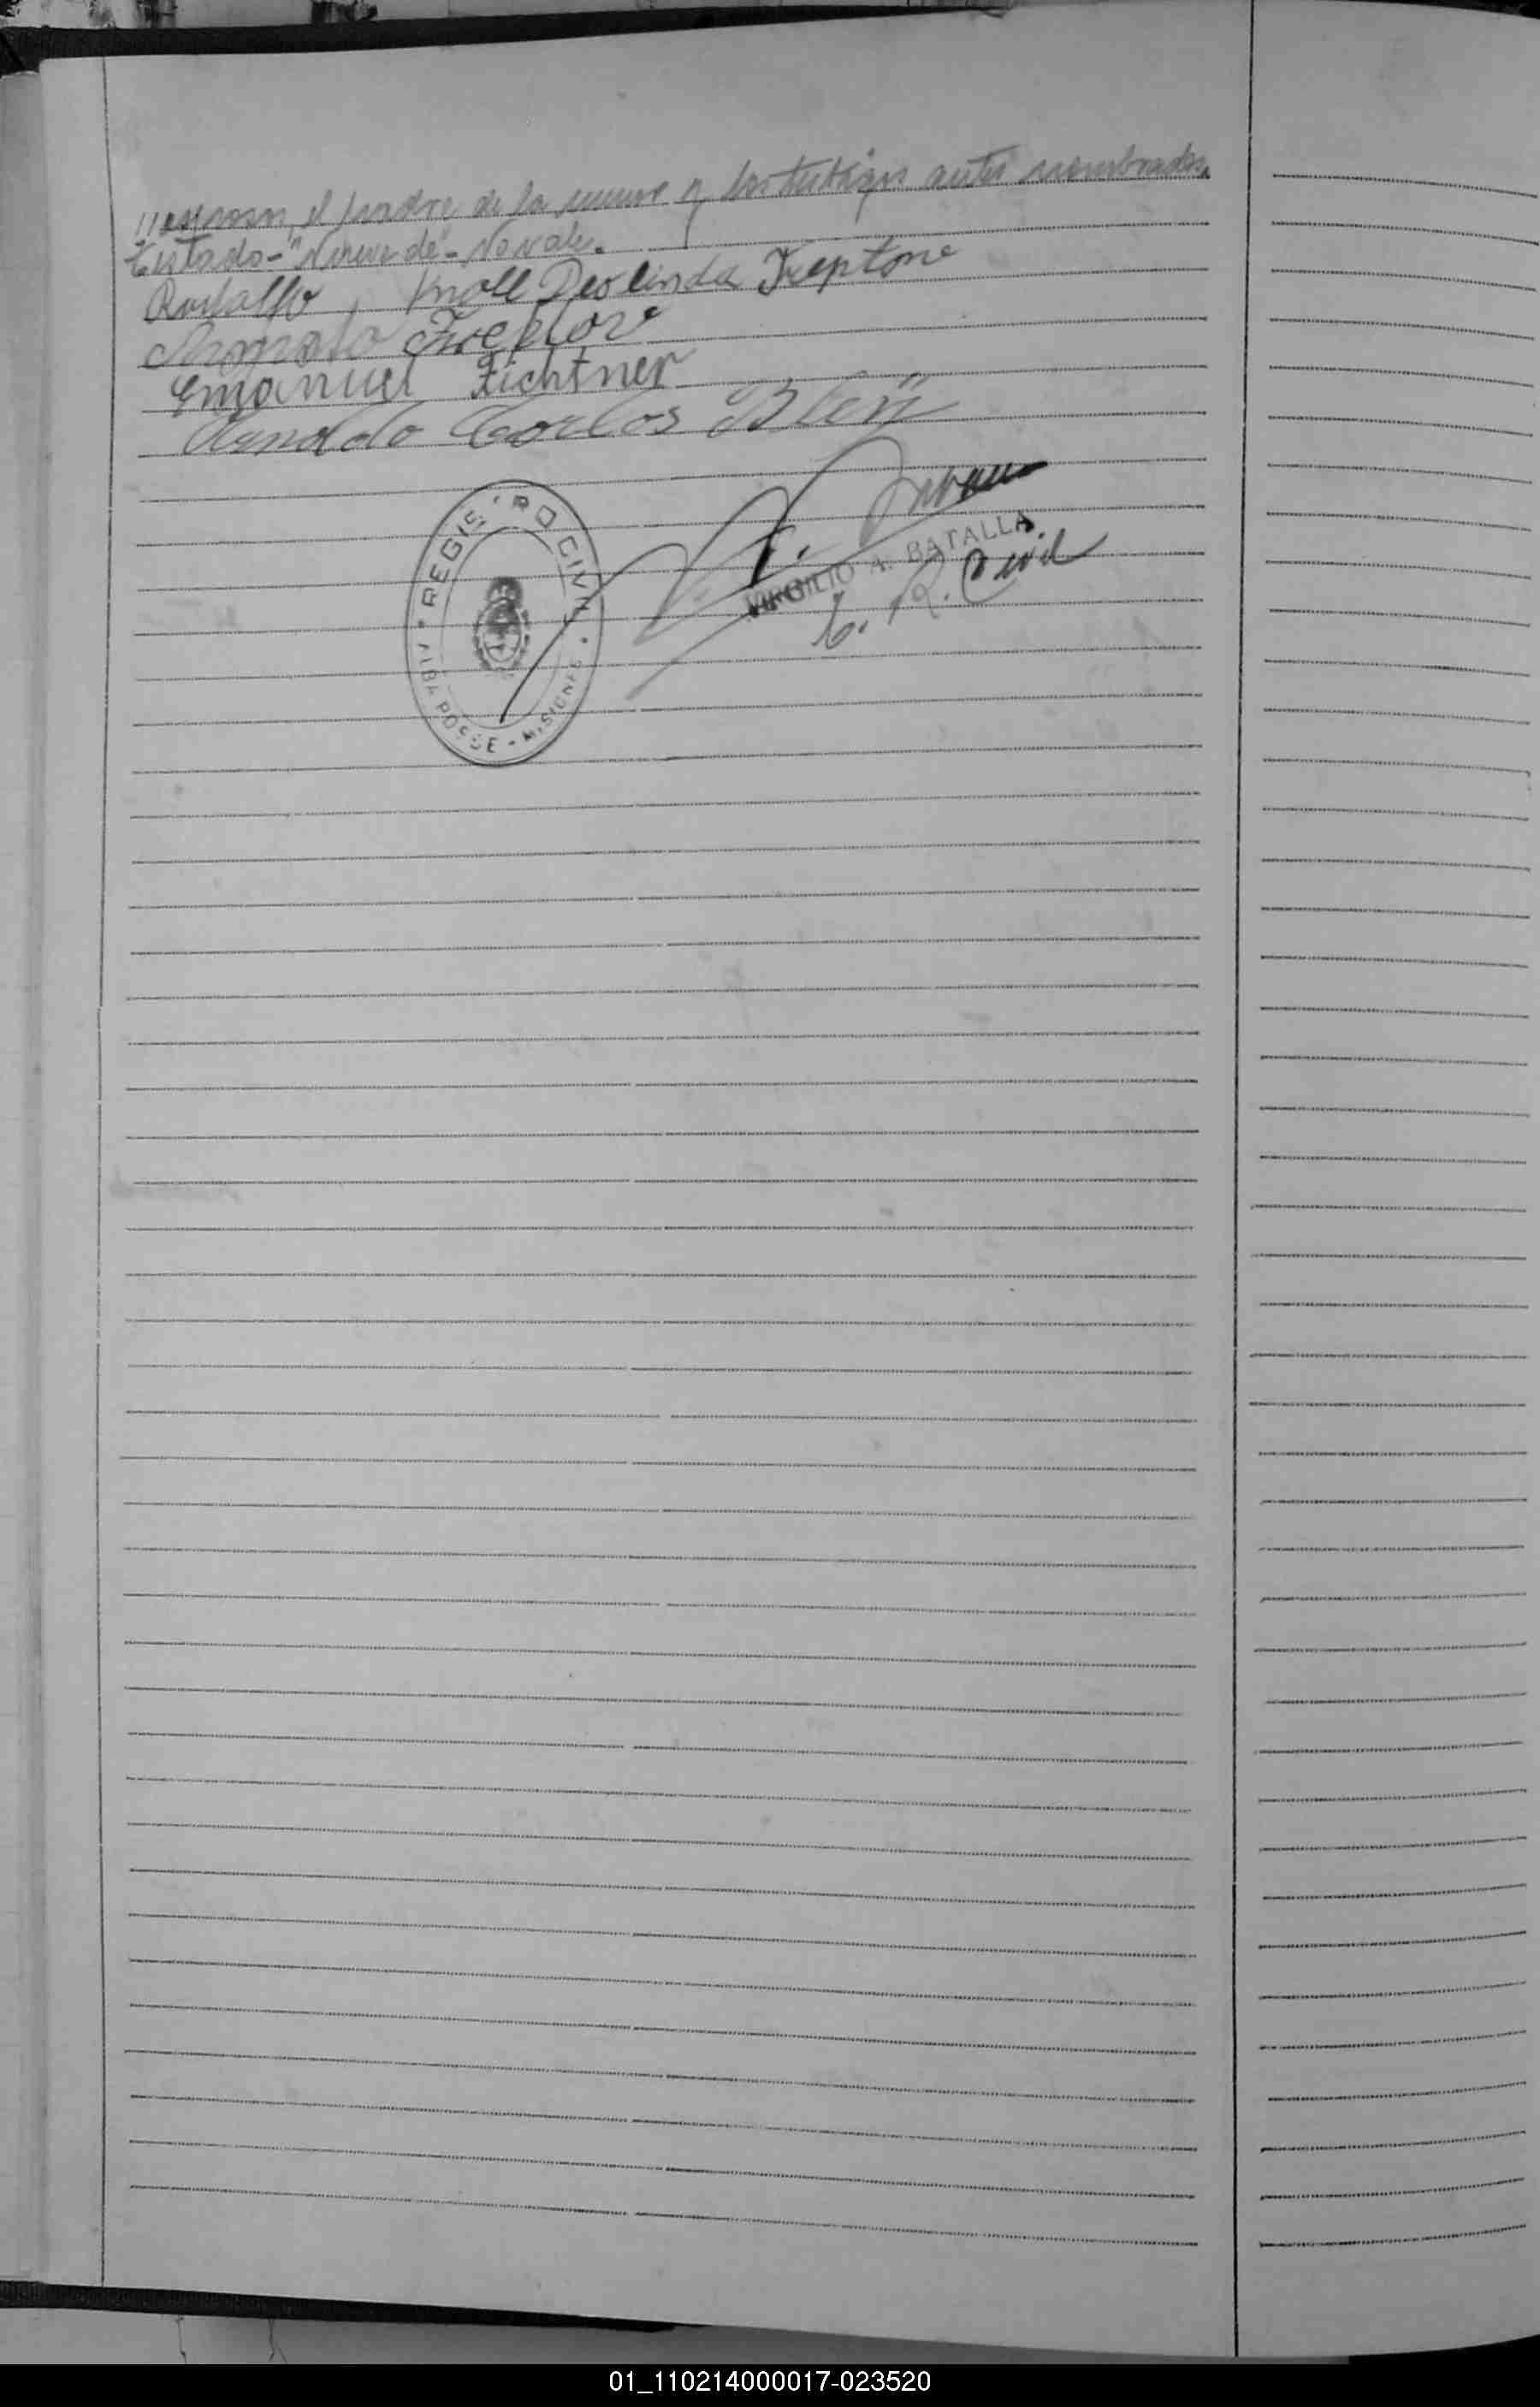 //esposos, el padre de la menor y los testigos antes nombrados.
Testado-"Nueve de"-No vale.
Rodolfo Knoll Deolinda Treptow
Treptow
Emanuel Lichtner
Arnoldo Carlos
REGISTRO CIVIL
ALBA POSSE - MISIONES
VIRGILIO A. BATALLA
E. R. Civil
01_110214000017-023520